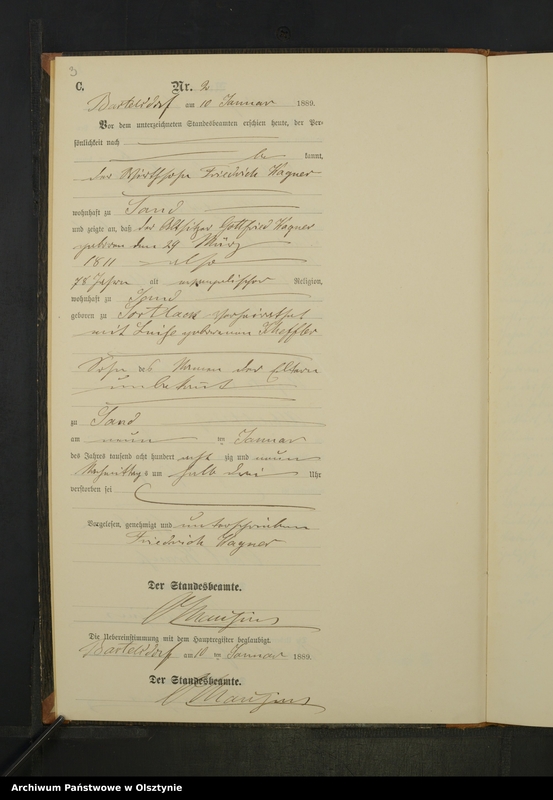 3
C.
Nr. 2
Bartelsdorf am 10 Januar 1889.
Vor dem unterzeichneten Standesbeamten erschien heute, der Per-
sönlichkeit nach
be kannt,
der Wirthssohn Friedrich Wagner
wohnhaft zu Sand
und zeigte an, daß der Altsitzer Gottfried Wagner
geboren den 29 März
1811 also
78 Jahre alt evangelischer Religion,
wohnhaft zu Sand
geboren zu verheirathet
mit Luise geborenen
Sohn Namen der Eltern
unbekannt
zu Sand
am neun ten Januar
des Jahres tausend acht hundert acht zig und neun
Nachmittags um halb drei Uhr
verstorben sei
Vorgelesen, genehmigt und unterschrieben
Friedrich Wagner
Der Standesbeamte.
Die Uebereinstimmung mit dem Hauptregister beglaubigt.
Bartelsdorf am 10 ten Januar 1889.
Der Standesbeamte.
Archiwum Państwowe w Olsztynie